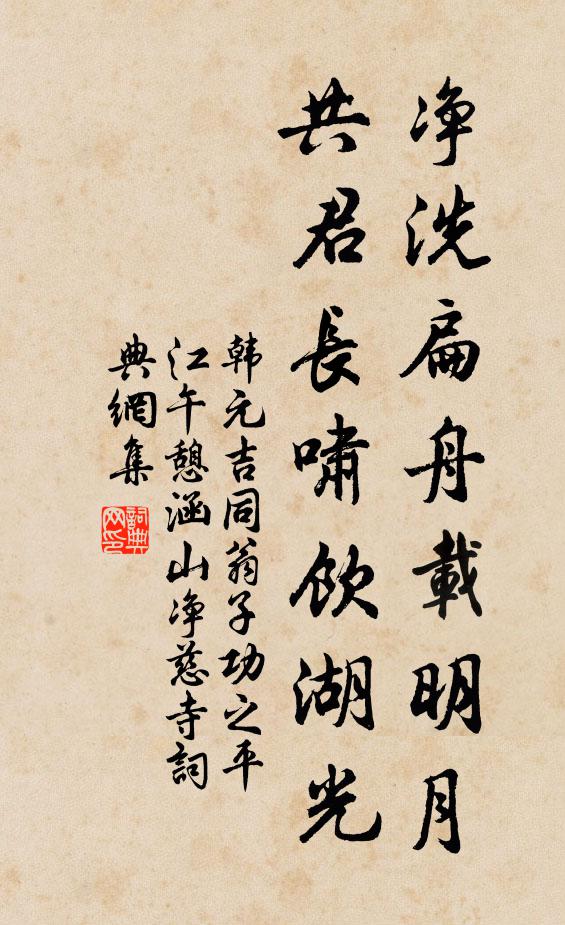 净洗扁舟載明月
共君長嘯飲湖光
韩元吉同翁子功之平
江午憩涵山净慈寺詞
典網集
詞典
网印